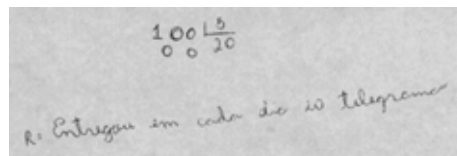 100 | 5
00 20
R: Entregou em cada dia 20 telegrama